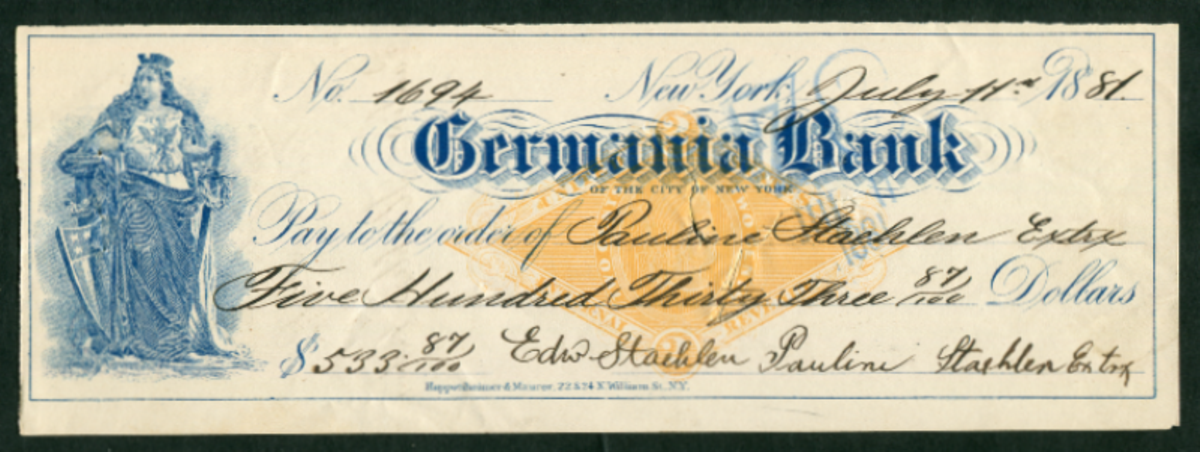 No. 1694 New York, July 11th 1881.
Germania Bank
OF THE CITY OF NEW YORK
Pay to the order of Pauline Staehlen Extrx
Five Hundred Thirty Three 87/100 Dollars
$ 533. 87/100 Edw. Staehlen Pauline Staehlen Extrx
Hoppenheimer & Maurer, 22 & 24 N. William St. N.Y.